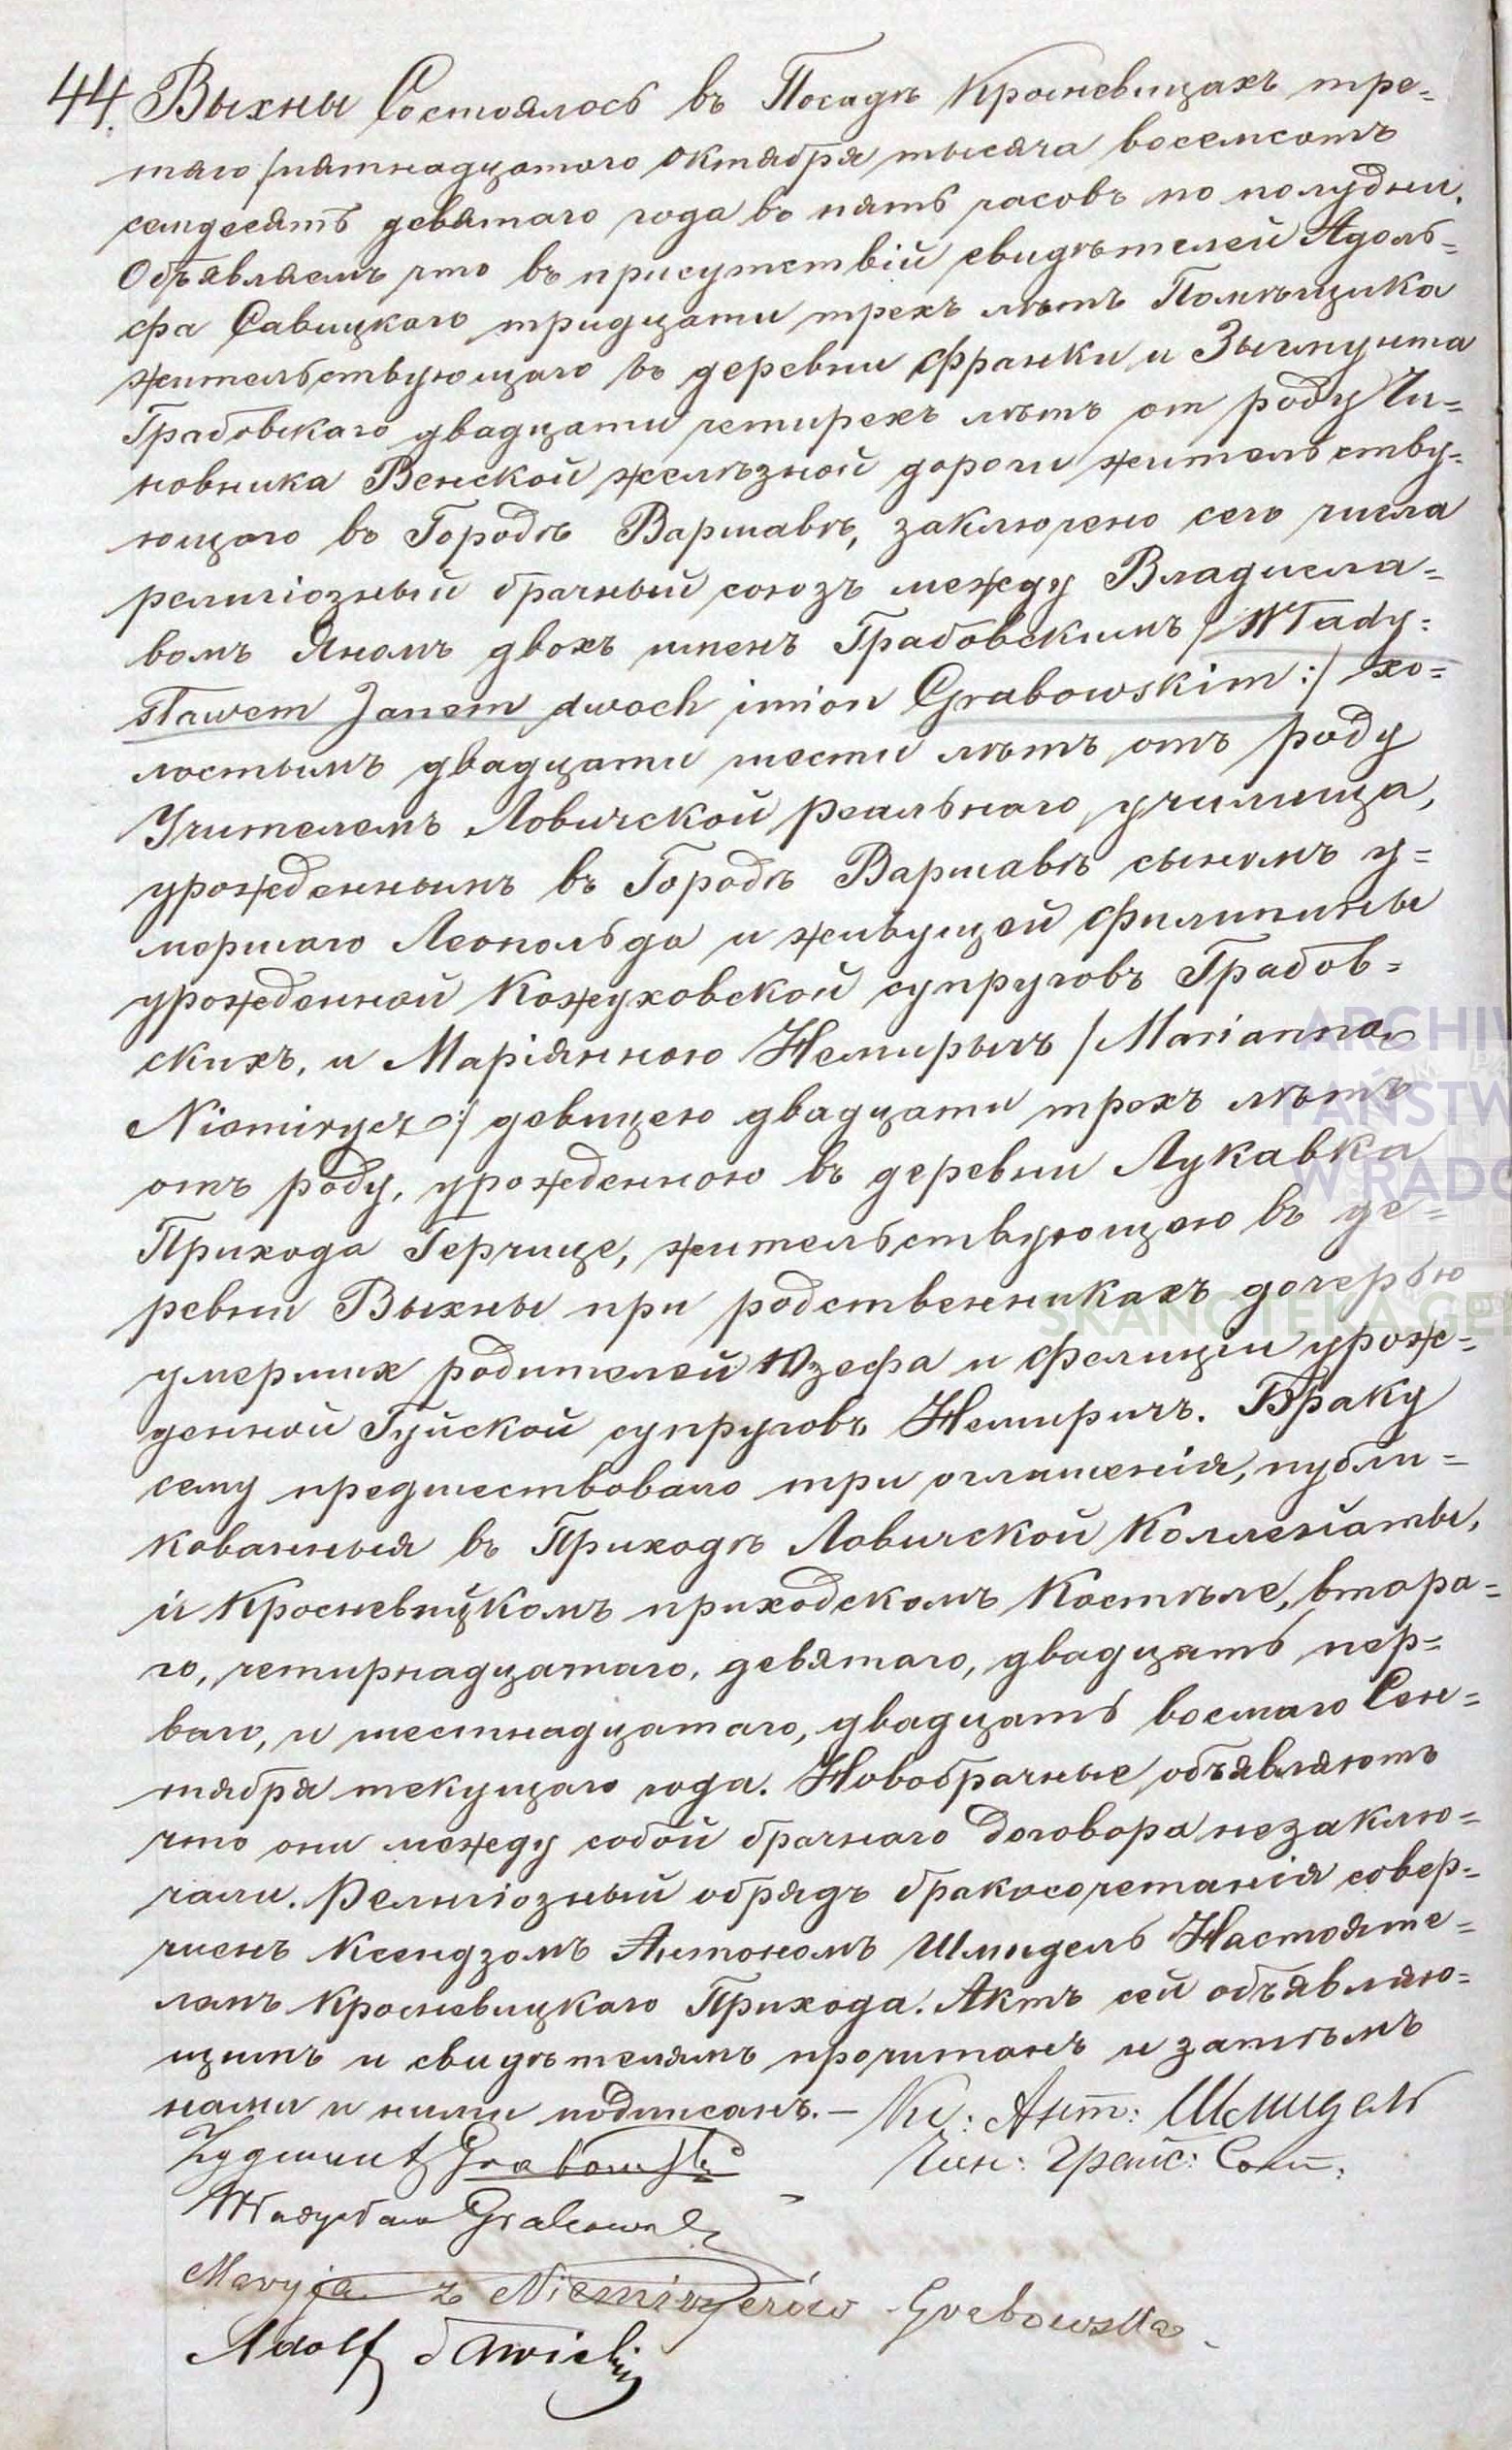 44. Выхны Состоялось въ Посадѣ Кросневицахъ тре=
таго /пятнадцатого Октября тысяча восемсотъ
семдесятъ девятаго года во пять часовъ по полудни.
Объявляемъ что въ присутствій свидѣтелей Адоль=
фа Савицкого тридцати трехъ лѣтъ Помѣщика
жительствующаго во деревни Франки и Зыгмунта
Грабовскаго двадцати четирехъ лѣтъ от роду Чи=
новника Венской желѣзной дороги жительству=
ющого во Городѣ Варшавѣ, заключено сего числа
религіозный брачный союзъ между Владисла=
вомъ Яномъ двохъ именъ Грабовскимъ /Włady:
sławem Janem dwoch imion Grabowskim:/ хо=
лостымъ двадцати шести лѣтъ отъ роду
Учителемъ Ловичской Реальнаго училища,
урожденнымъ въ Городѣ Варшавѣ сыномъ у=
мершаго Леопольда и живущей Филипины
урожденной Кожуховской супруговъ Грабов=
скихъ, и Маріянною Немирычъ /Marianną
Niemirycz:/ девицею двадцати трехъ лѣтъ
отъ роду, урожденною въ деревни Лукавка
Прихода Герчице, жительствующею въ де=
ревни Выхны при родственникахъ дочерью
умерших родителей Юзефа и Фелиціи урож=
денной Гуйской супруговъ Немиричъ. Браку
сему предшествовало три оглашенія, публи=
кованныя въ Приходѣ Ловичской Коллегіаты,
и Кросневицкомъ приходскомъ Костѣле, втора=
го, четирнадцатаго, девятаго, двадцать пер=
ваго, и шестнадцатаго, двадцать восмаго Сен=
тября текущаго года. Новобрачные объявляютъ
что они между собой брачнаго договора незаклю=
чали. Религіозный обрядъ бракосочетанія совер=
шенъ Ксендзомъ Антономъ Шмидель Настояте=
лемъ Кросневицкаго Прихода. Актъ сей объявляю=
щимъ и свидѣтелямъ прочитанъ и затѣмъ
нами и ними подписанъ. — Кс: Ант: Шмидель
Чин: Граж: Сост:
Zygmunt Grabowski
Władysław Grabowski
Maryja z Niemiryczów Grabowska
Adolf Sawicki
ARCHIW
PAŃSTW
W RADO
SKANOTEKA.GE